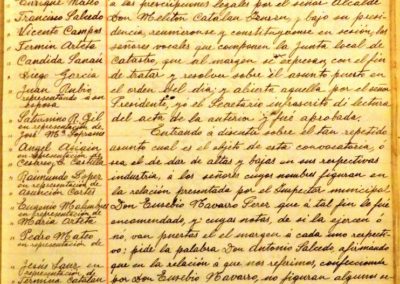 " Enrique Mateo
" Francisco Salcedo
" Vicente Campos
" Fermin Arteta
" Candida Sanaú
" Diego García
" Juan Rubio
representando a su
esposa
" Saturnino R. Gil
en representación de
José Mª Soprano
" Angel Aisgin
en representación de
Cesareo C. Castillo
" Raimundo Lopez
en representacion de
Asuncion Cortés
" Eugenio
en representación de
Maria Arteta
" Pedro Mateo
en representación de
" Jesús Sanz en
representación de
Fermina Catalan
á las prescripciones legales por el señor Alcalde
Don Meliton Catalan Cavero, y bajo su presi-
dencia, reunieronse y constituyéronse en sesión, los
señores vocales que componen la Junta local de
Catastro, que al margen se expresan, con el fin
de tratar y resolver sobre el asunto puesto en
el orden del día; y abierta aquella por el señor
Presidente, yo el Secretario infrascrito di lectura
del acta de la anterior y fué aprobada.
Entrando á discutir sobre el tan repetido
asunto cual es el objeto de esta convocatoria, ó
sea el de dar de altas y bajas en sus respectivas
industria, á los señores cuyos nombres figuran en
la relación presentada por el Inspector municipal
Don Eusebio Navarro Perez que á tal fin le fué
encomendado, y cuyas notas, de si la ejercen ó
no, van puertas en el margen á cada uno respecti-
vo; pide la palabra Don Antonio Salcedo, afirmando
que en la relación á que nos referimos, confeccionada
por Don Eusebio Navarro, no figuran algunos se